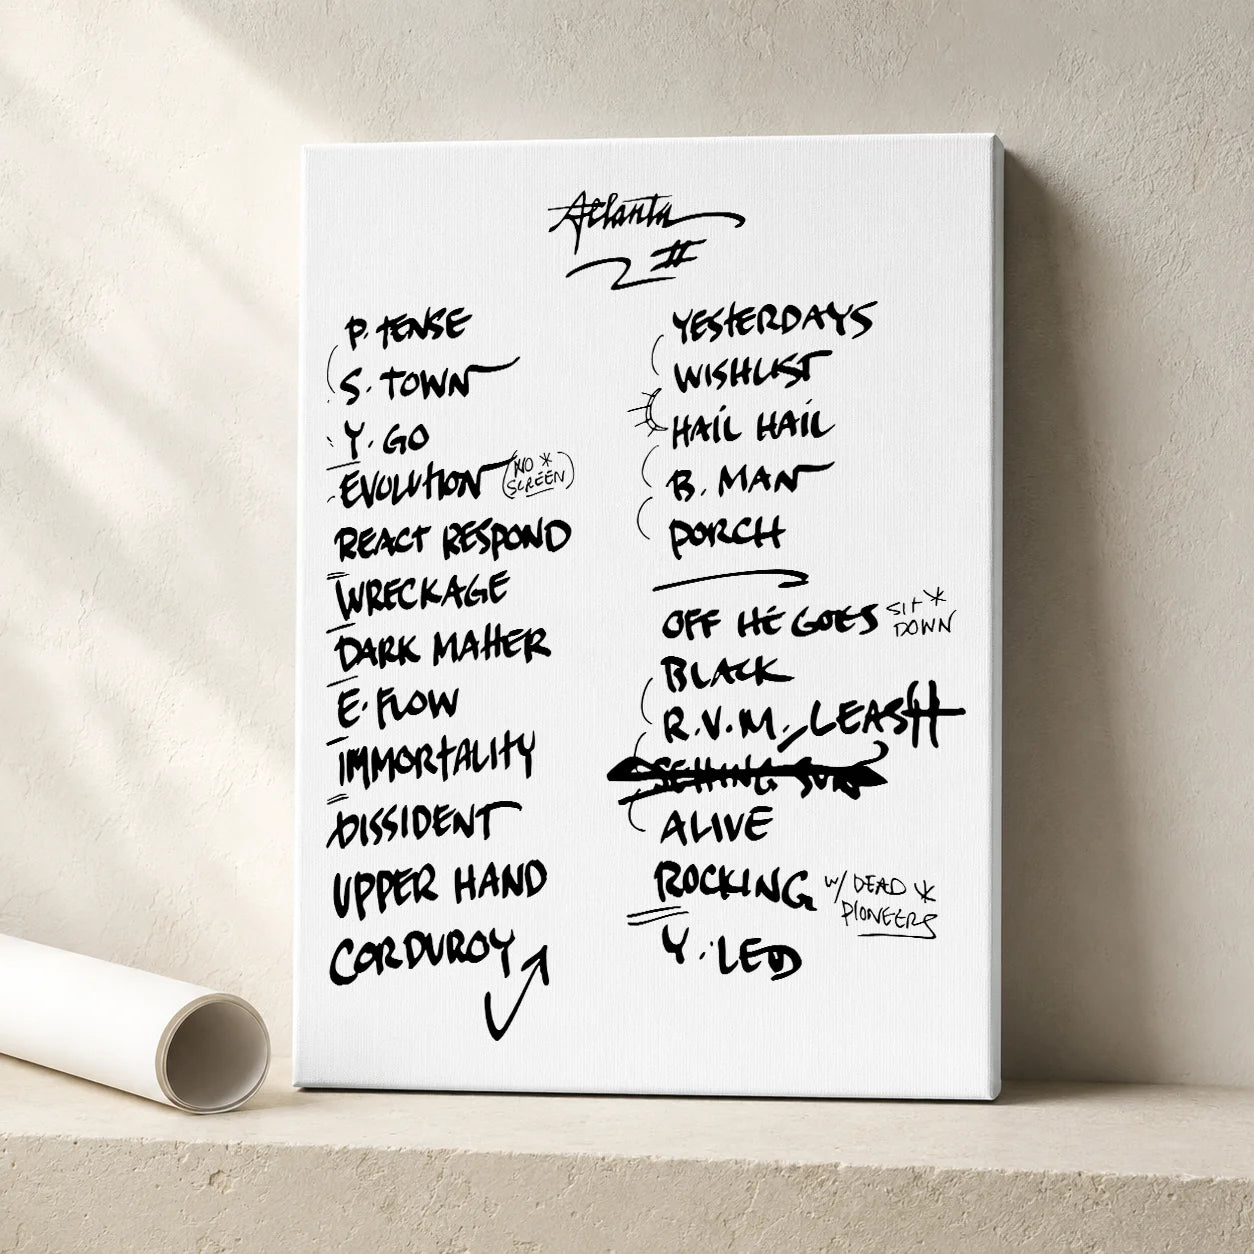 Atlanta
II
P. TENSE
S. TOWN
Y. GO
EVOLUTION (NO * SCREEN)
REACT RESPOND
WRECKAGE
DARK MATTER
E. FLOW
IMMORTALITY
DISSIDENT
UPPER HAND
CORDUROY
YESTERDAYS
WISHLIST
HAIL HAIL
B. MAN
PORCH
OFF HE GOES SIT * DOWN
BLACK
R.V.M. / LEASH
SETTING SUN
ALIVE
ROCKING W/ DEAD * PIONEERS
Y. LED